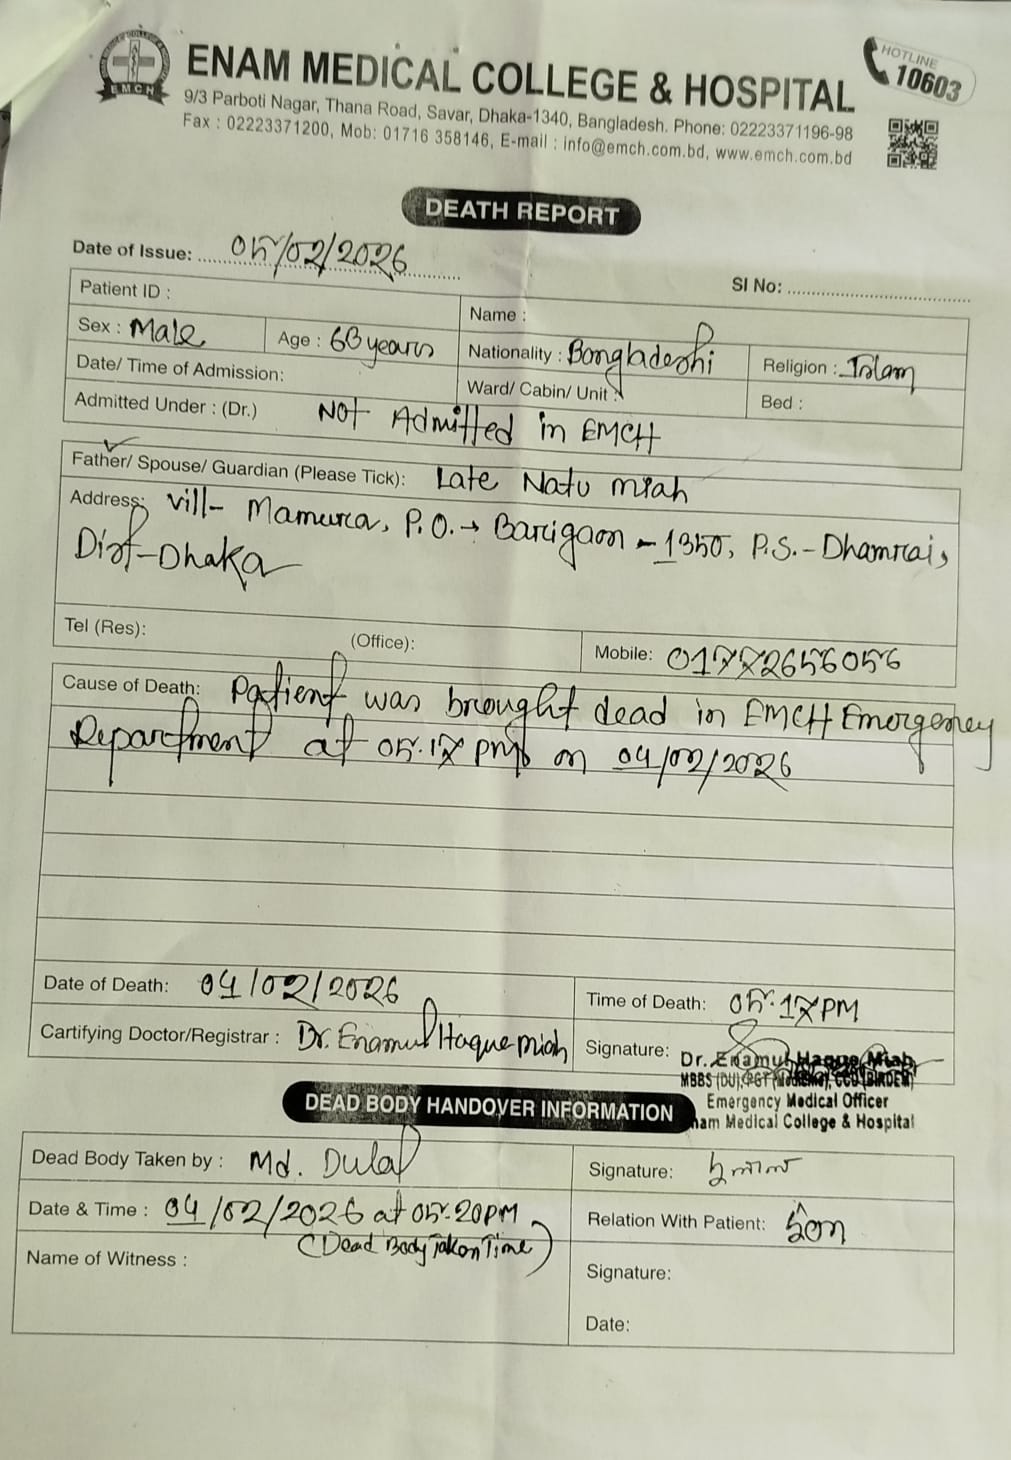 EMCH
ENAM MEDICAL COLLEGE & HOSPITAL
HOTLINE
10603
9/3 Parboti Nagar, Thana Road, Savar, Dhaka-1340, Bangladesh. Phone: 02223371196-98
Fax : 02223371200, Mob: 01716 358146, E-mail : info@emch.com.bd, www.emch.com.bd
DEATH REPORT
Date of Issue: 05/02/2026
Sl No:
Patient ID :
Name :
Sex : Male Age : 63 years Nationality : Bangladeshi Religion : Islam
Date/ Time of Admission: Ward/ Cabin/ Unit : Bed :
Admitted Under : (Dr.) Not Admitted in EMCH
Father/ Spouse/ Guardian (Please Tick): Late Natu miah
Address: Vill- Mamura, P.O.→ Barigaon - 1350, P.S.- Dhamrai,
Dist-Dhaka
Tel (Res): (Office): Mobile: 01772656056
Cause of Death: Patient was brought dead in EMCH Emergency
Department at 05.17 pm on 04/02/2026
Date of Death: 04/02/2026 Time of Death: 05.17 PM
Cartifying Doctor/Registrar : Dr. Enamul Haque miah Signature:
Dr. Enamul Haque Miah
Emergency Medical Officer
nam Medical College & Hospital
DEAD BODY HANDOVER INFORMATION
Dead Body Taken by : Md. Dulal Signature: দুলাল
Date & Time : 04/02/2026 at 05.20 PM Relation With Patient: Son
(Dead Body Taken Time)
Name of Witness : Signature:
Date: